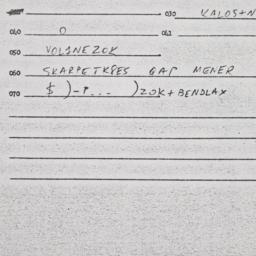 030 KALOS+N
040 O 041
050 VOLANEZOK
060 SKARPETKRES GAT MENER
070 $ )-P... )ZOK+BENDLAX